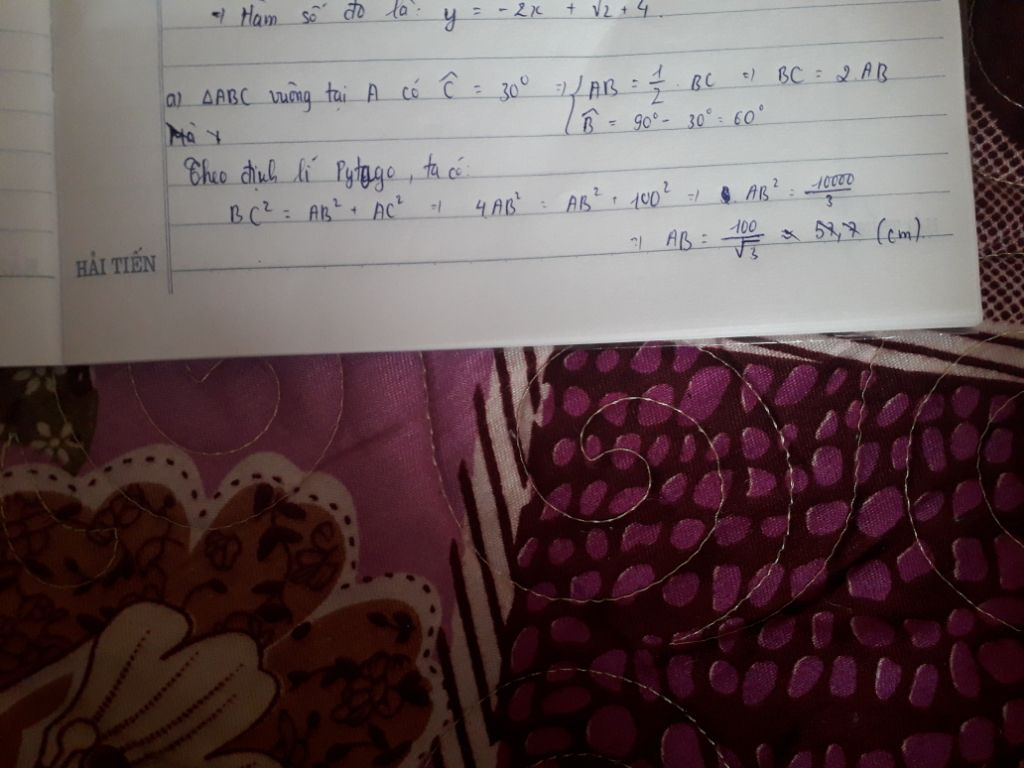 => Hàm số đó là: y = -2x + √2 + 4.
a) ΔABC vuông tại A có Ĉ = 30° => { AB = 1/2 . BC => BC = 2AB
B̂ = 90° - 30° = 60°
Theo định lí Pytago, ta có:
BC² = AB² + AC² => 4AB² = AB² + 100² => AB² = 10000/3
=> AB = 100/√3 ≈ 57,7 (cm).
HẢI TIẾN